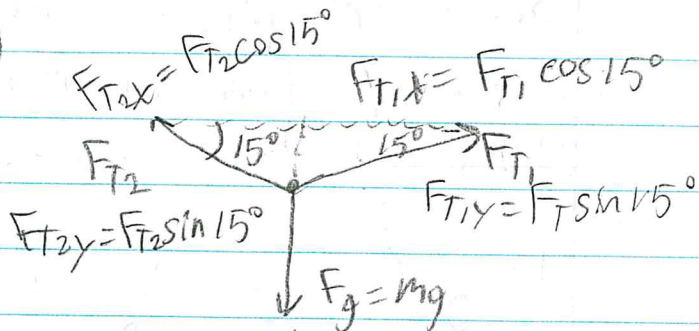 F_T₂x = F_T₂cos15°
F_T₁x = F_T₁ cos 15°
15°
15°
F_T₂
F_T₁
F_T₁y = F_T sin 15°
F_T₂y = F_T₂ sin 15°
F_g = mg